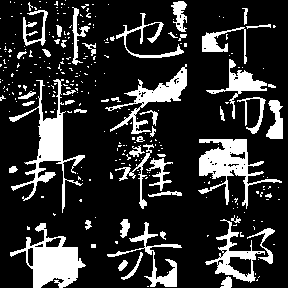 十而非邦
也者唯赤
則非邦也